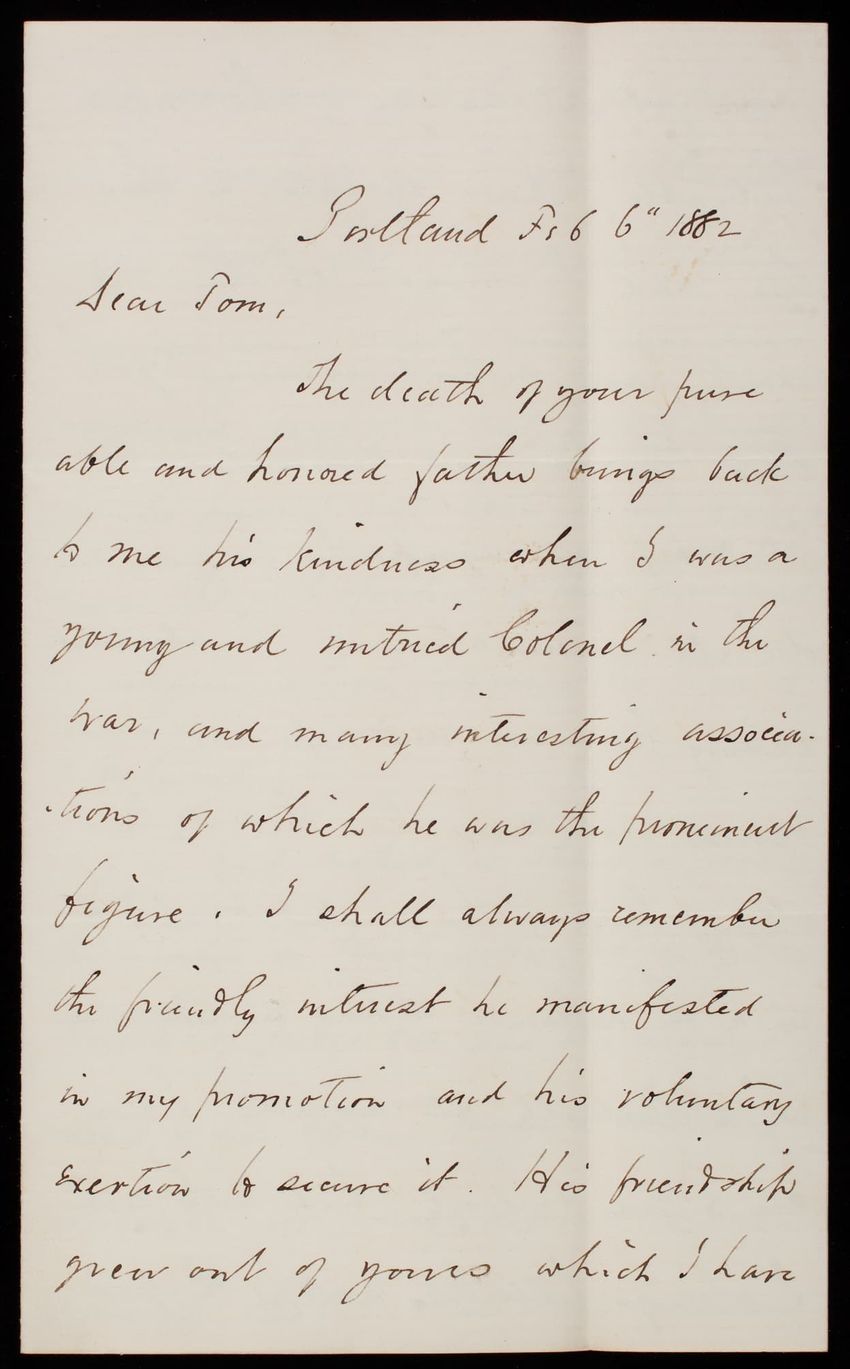 Portland Feb 6" 1882
Dear Tom,
The death of your pure
able and honored father brings back
to me his kindness when I was a
young and untried Colonel in the
war, and many interesting associa-
-tions of which he was the prominent
figure. I shall always remember
the friendly interest he manifested
in my promotion and his voluntary
exertion to secure it. His friendship
grew out of yours which I have